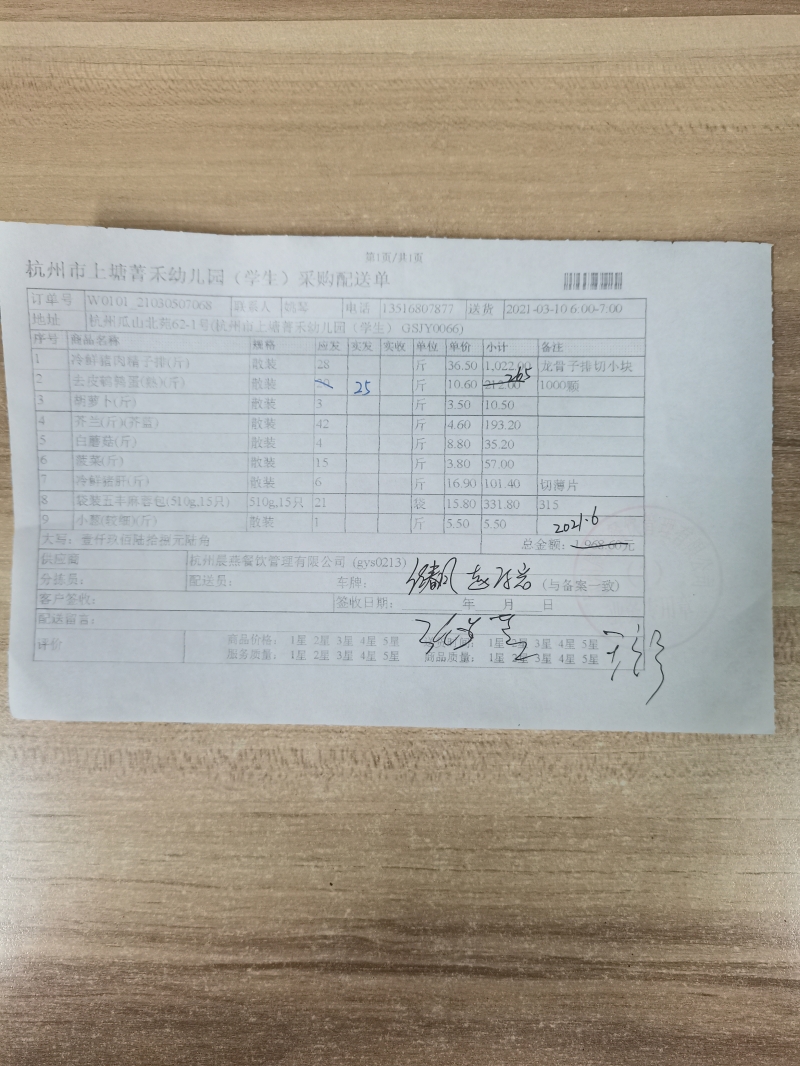 第1页/共1页
杭州市上塘菁禾幼儿园（学生）采购配送单
订单号 W0101_21030507068 联系人 姚琴 电话 13516807877 送货 2021-03-10 6:00-7:00
地址 杭州瓜山北苑62-1号(杭州市上塘菁禾幼儿园（学生） GSJY0066)
序号 商品名称 规格 应发 实发 实收 单位 单价 小计 备注
1 冷鲜猪肉精子排(斤) 散装 28 斤 36.50 1,022.00 龙骨子排切小块
2 去皮鹌鹑蛋(熟)(斤) 散装 25 斤 10.60 212.00 265 1000颗
3 胡萝卜(斤) 散装 3 斤 3.50 10.50
4 芥兰(斤)(芥蓝) 散装 42 斤 4.60 193.20
5 白蘑菇(斤) 散装 4 斤 8.80 35.20
6 菠菜(斤) 散装 15 斤 3.80 57.00
7 冷鲜猪肝(斤) 散装 6 斤 16.90 101.40 切薄片
8 袋装五丰麻蓉包(510g,15只) 510g,15只 21 袋 15.80 331.80 315
9 小葱(较细)(斤) 散装 1 斤 5.50 5.50
2021.6
大写：壹仟玖佰陆拾捌元陆角 总金额：1,968.60元
供应商 杭州晨燕餐饮管理有限公司 (gys0213)
分拣员： 配送员： 车牌： (与备案一致)
客户签收： 签收日期： 年 月 日
配送留言：
评价 商品价格： 1星 2星 3星 4星 5星 1星 2星 3星 4星 5星
服务质量： 1星 2星 3星 4星 5星 商品质量： 1星 2星 3星 4星 5星